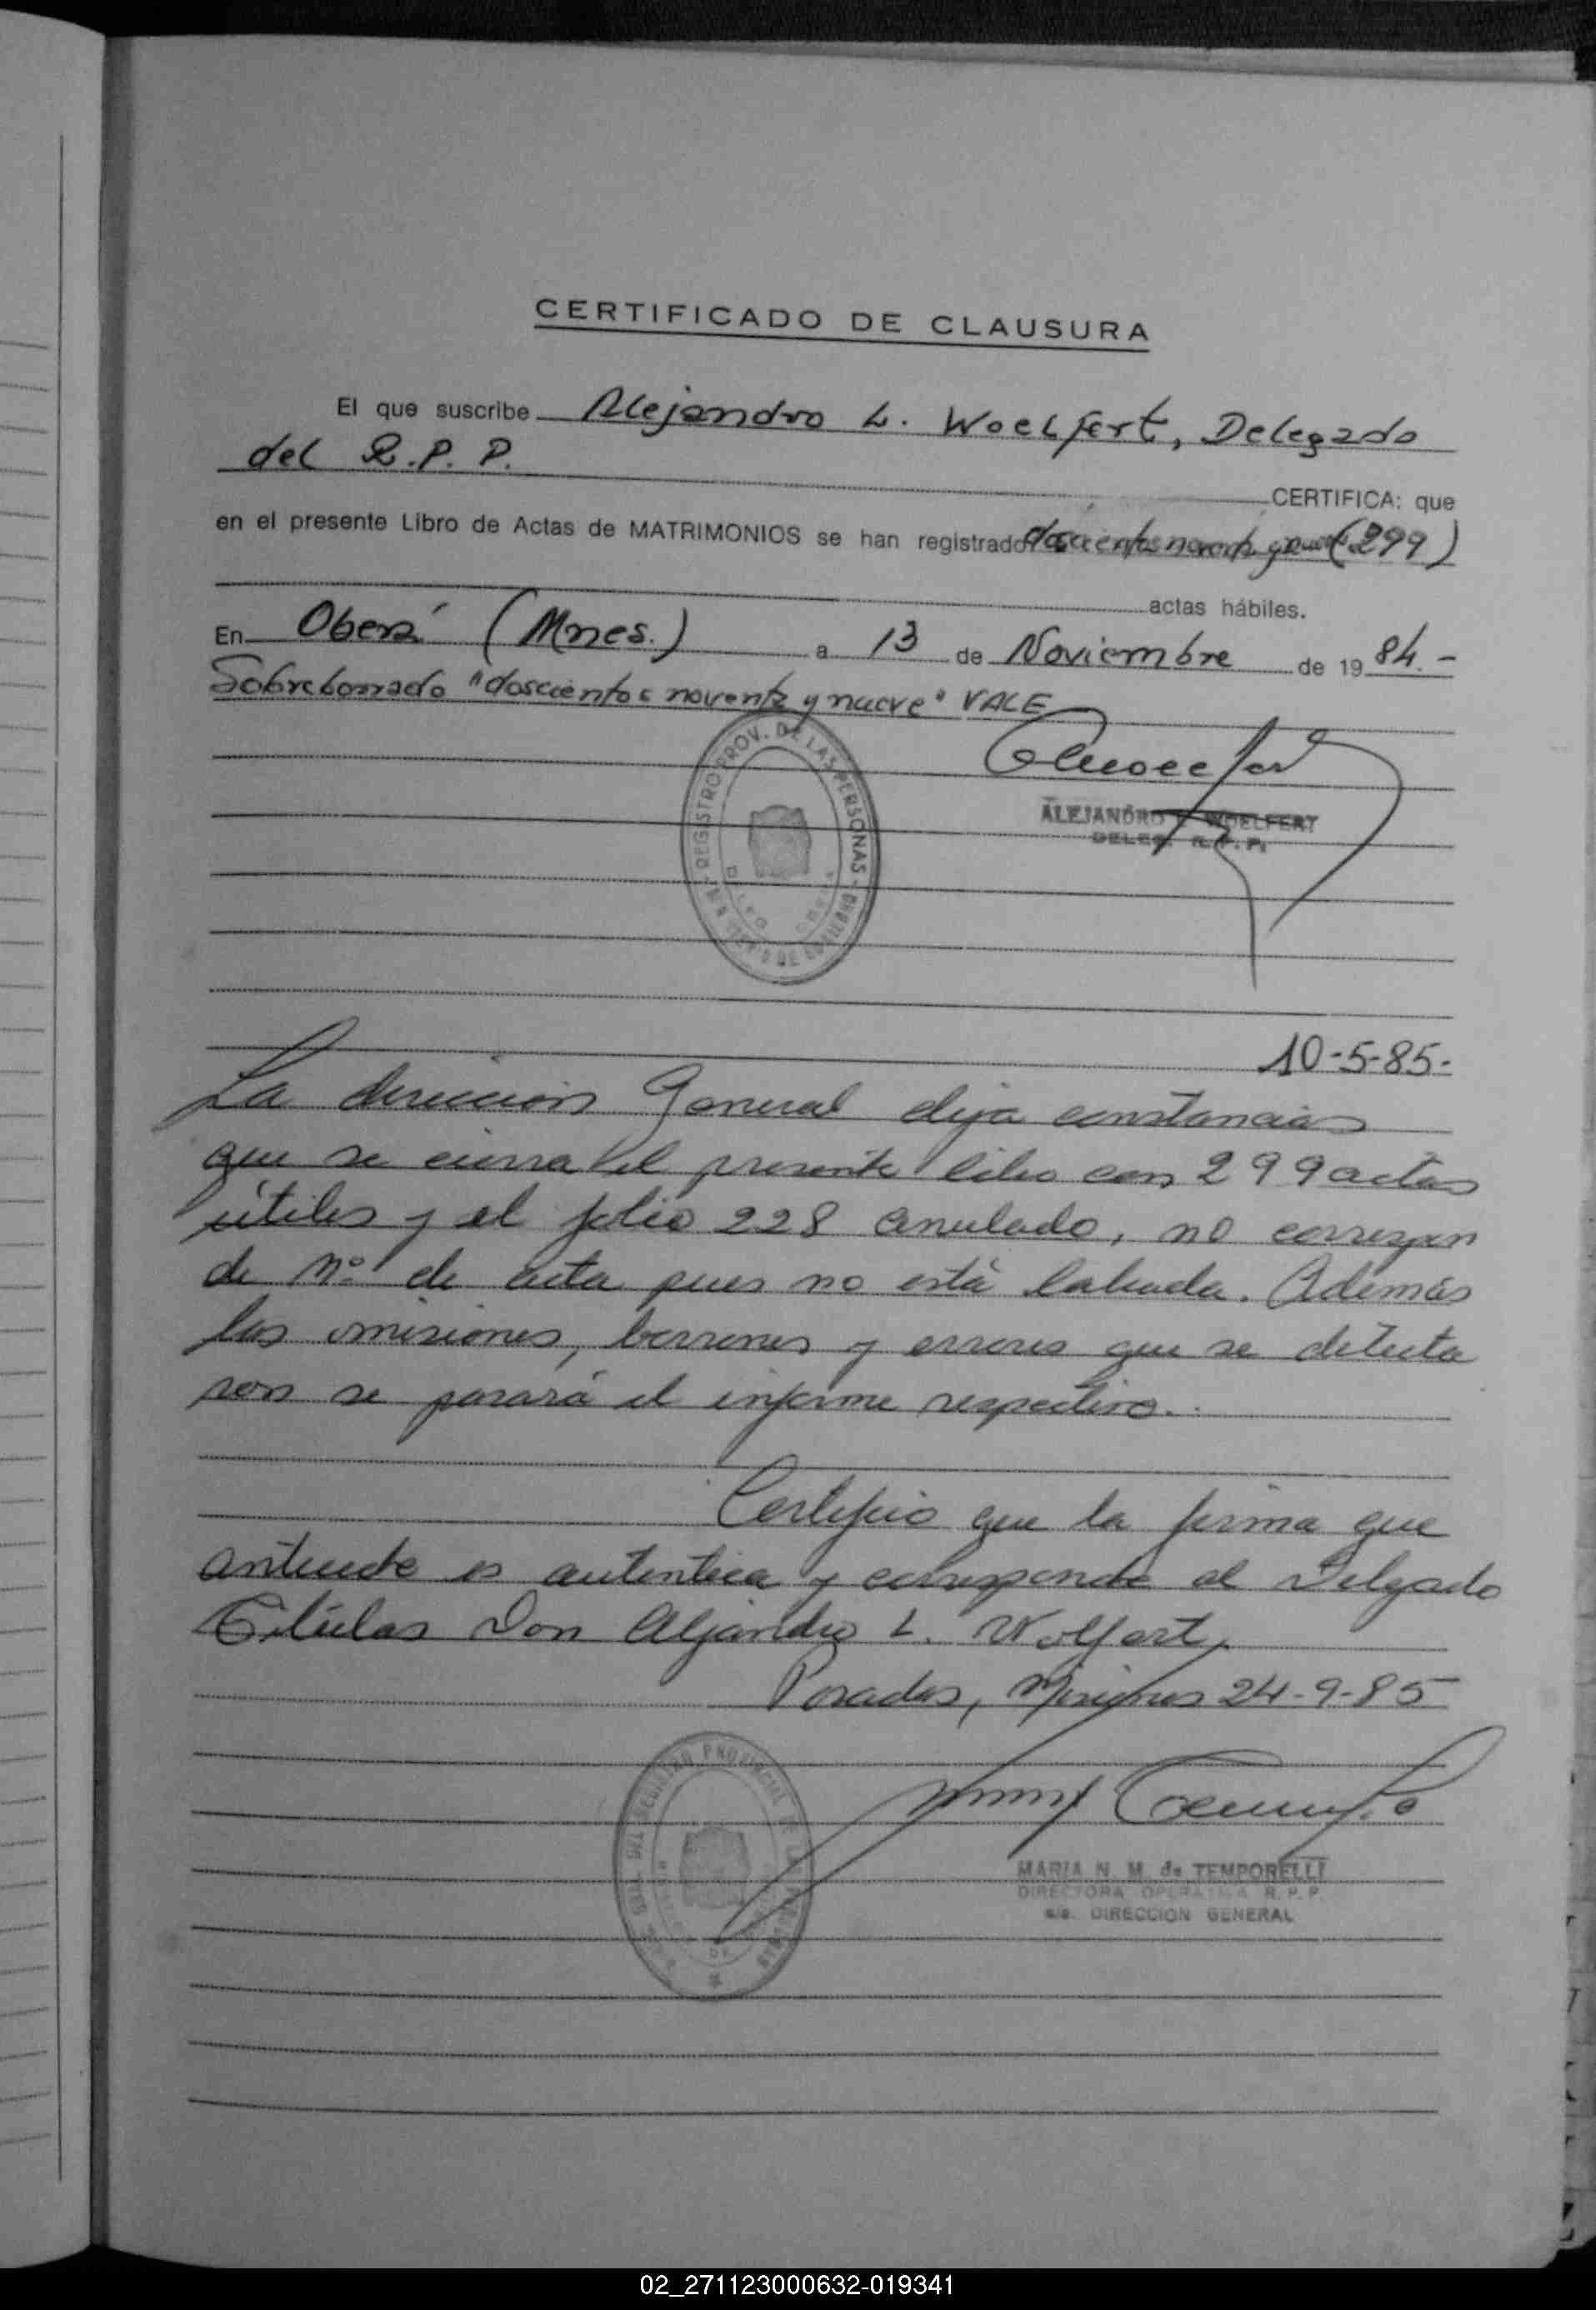 CERTIFICADO DE CLAUSURA
El que suscribe Alejandro L. Woelfert, Delegado
del R.P.P.
CERTIFICA: que
en el presente Libro de Actas de MATRIMONIOS se han registrado doscientos noventa y nueve (299)
actas hábiles.
En Oberá (Mnes.) a 13 de Noviembre de 19 84.-
Sobreborrado "doscientos noventa y nueve" VALE
REGISTRO PROV. DE LAS PERSONAS
ALEJANDRO L. WOELFERT
DELEG. R.P.P.
10-5-85.-
La dirección General deja constancia
que se cierra el presente libro con 299 actas
útiles y el folio 228 anulado, no correspon
de Nº de acta pues no está labrada. Además
las omisiones, borrones y errores que se detecta
ron se pasará el informe respectivo.
Certifico que la firma que
antecede es autentica y corresponde al Delgado
Titular Don Alejandro L. Wolfert,
Posadas, Misiones 24-9-85
GRAL. DEL REGISTRO PROVINCIAL DE LAS PERSONAS
MARIA N. M. de TEMPORELLI
DIRECTORA OPERATIVA R.P.P.
a/c. DIRECCION GENERAL
02_271123000632-019341